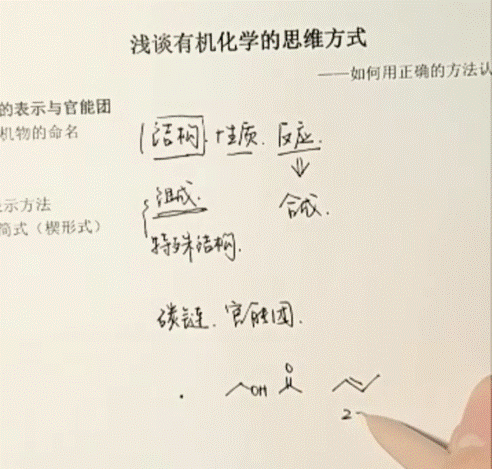 浅谈有机化学的思维方式
——如何用正确的方法认
的表示与官能团
机物的命名
结构.性质.反应
组成.
合成.
示方法
简式（楔形式）
特殊结构.
碳链.官能团.
OH
O
2-